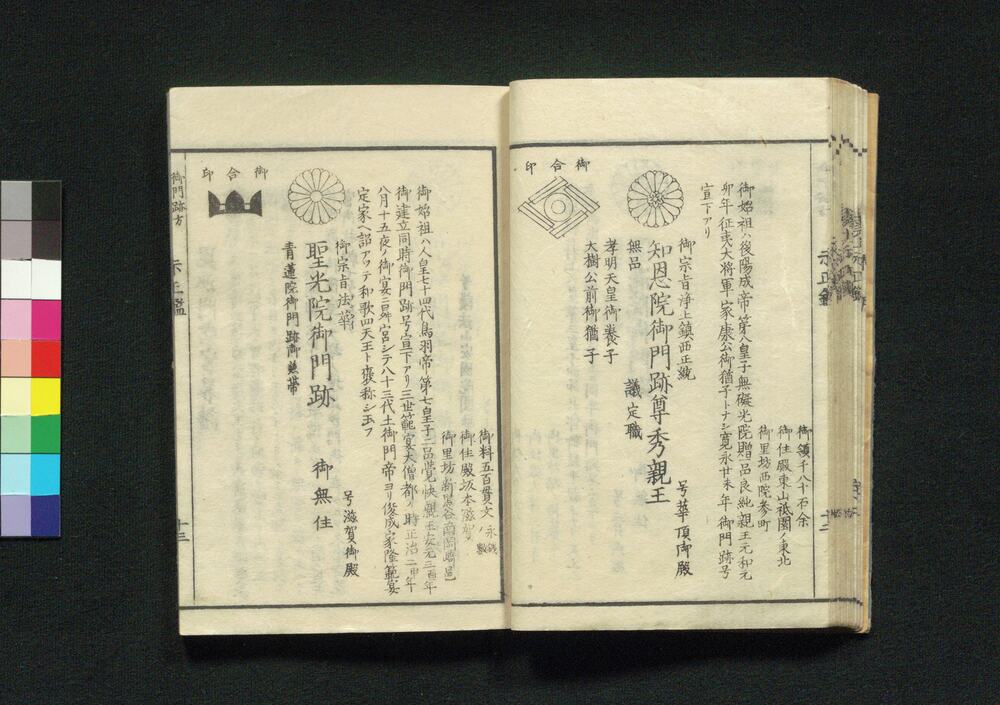 御領千八十石余
御住殿東山祗園ノ東北
御里坊西院参町
御始祖ハ後陽成帝第八皇子無礙光院贈品良純親王元和元
卯年征夷大将軍家康公御猶子トナシ寛永廿未年御門跡号
宣下アリ
御宗旨浄土鎮西正統
知恩院御門跡尊秀親王
号華頂御殿
無品
議定職
孝明天皇御養子
大樹公前御猶子
御合印
御料五百貫文
永銭ノ数
御住殿坂本滋賀
御里坊
御始祖ハ人皇七十四代鳥羽帝第七皇子二品覚快親王安元三酉年
御建立同時御門跡号宣下アリ三世範宴大僧都ノ時正治二申年
八月十五夜ノ御宴ニ昇宮シテ八十三代土御門帝ヨリ俊成家隆範宴
定家ヘ詔アツテ和歌四天王ト褒称シ玉フ
号滋賀御殿
御宗旨法華
聖光院御門跡
御無住
青蓮院御門跡御兼帯
御合印
御門跡方
十三